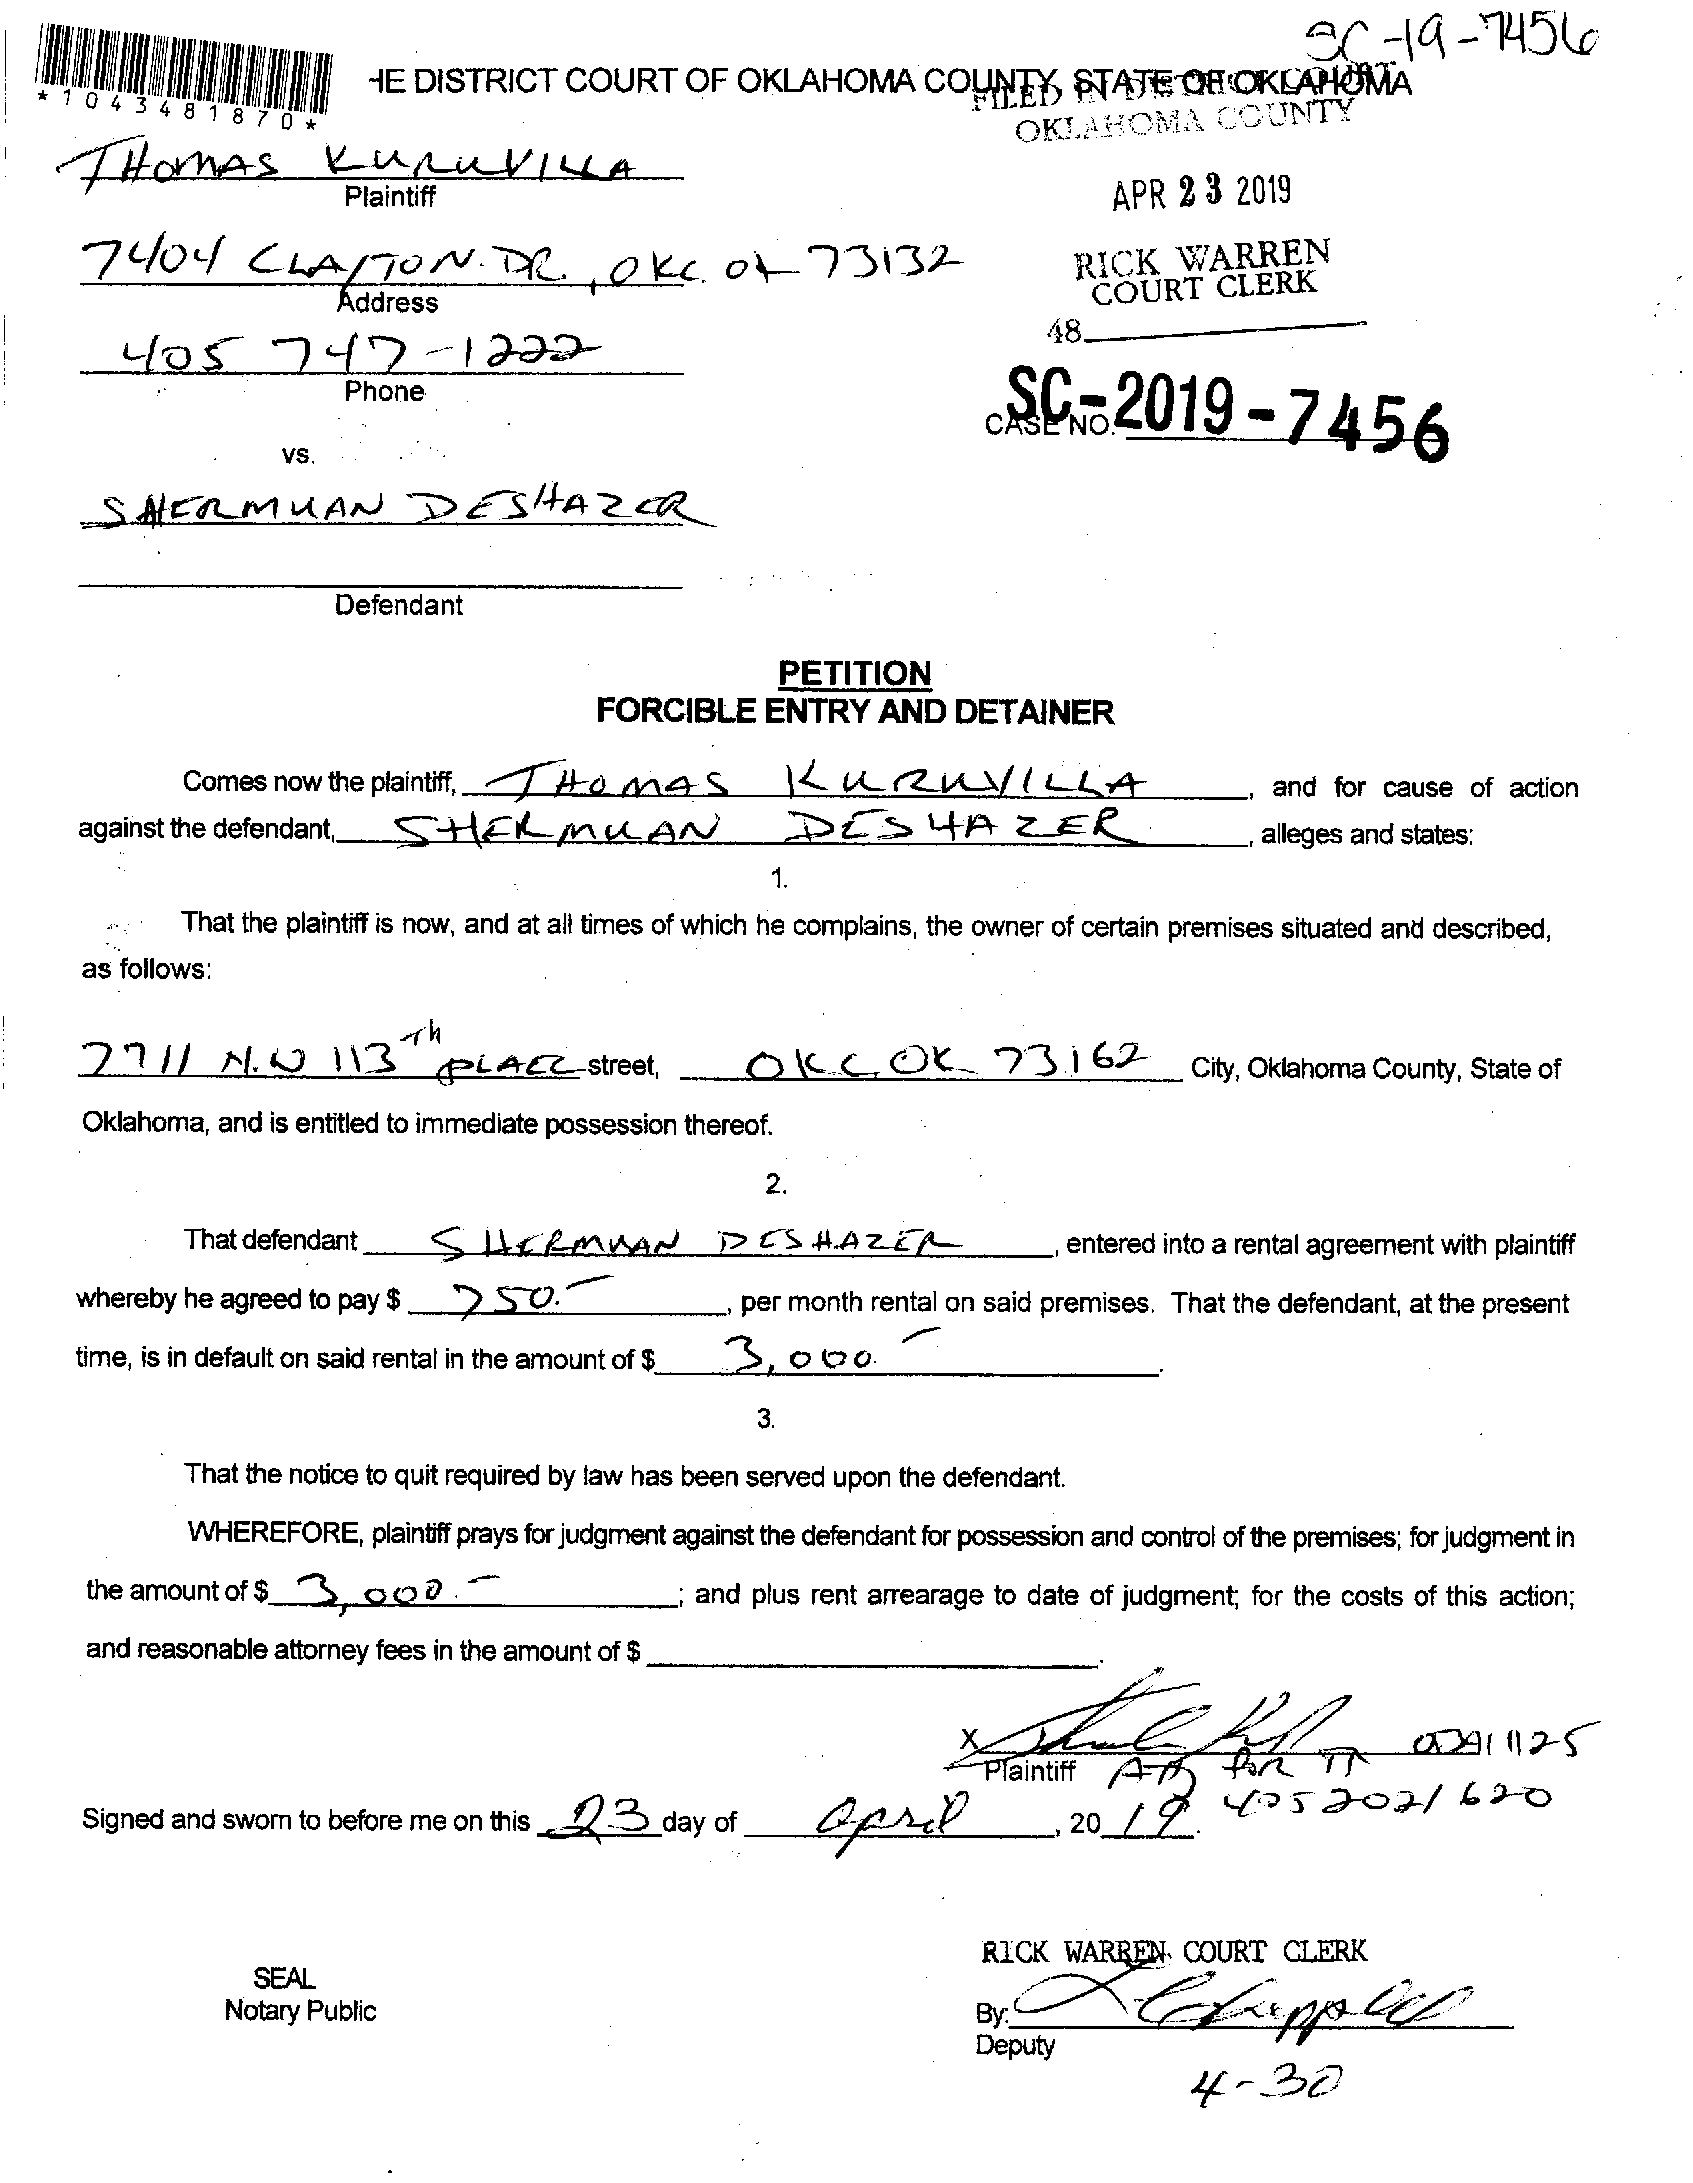 SC-19-7456
HE DISTRICT COURT OF OKLAHOMA COUNTY, STATE OF OKLAHOMA
*1043481870*
FILED IN DISTRICT COURT
OKLAHOMA COUNTY
THOMAS KURUVILLA
Plaintiff
APR 23 2019
7404 CLAYTON DR., OKC. OK 73132
Address
RICK WARREN
COURT CLERK
405 747-1222
Phone
48
SC-2019-7456
CASE NO.
vs.
SHERMUAN DESHAZER
Defendant
PETITION
FORCIBLE ENTRY AND DETAINER
Comes now the plaintiff, THOMAS KURUVILLA, and for cause of action
against the defendant, SHERMUAN DESHAZER, alleges and states:
1.
That the plaintiff is now, and at all times of which he complains, the owner of certain premises situated and described,
as follows:
7711 N.W 113th PLACE street, OKC OK 73162 City, Oklahoma County, State of
Oklahoma, and is entitled to immediate possession thereof.
2.
That defendant SHERMUAN DESHAZER, entered into a rental agreement with plaintiff
whereby he agreed to pay $ 750.-, per month rental on said premises. That the defendant, at the present
time, is in default on said rental in the amount of $ 3,000.-.
3.
That the notice to quit required by law has been served upon the defendant.
WHEREFORE, plaintiff prays for judgment against the defendant for possession and control of the premises; for judgment in
the amount of $ 3,000.-; and plus rent arrearage to date of judgment; for the costs of this action;
and reasonable attorney fees in the amount of $ .
X
Plaintiff
for
405 2021620
Signed and sworn to before me on this 23 day of April, 20 19.
RICK WARREN COURT CLERK
SEAL
Notary Public
By:
Deputy
4-30